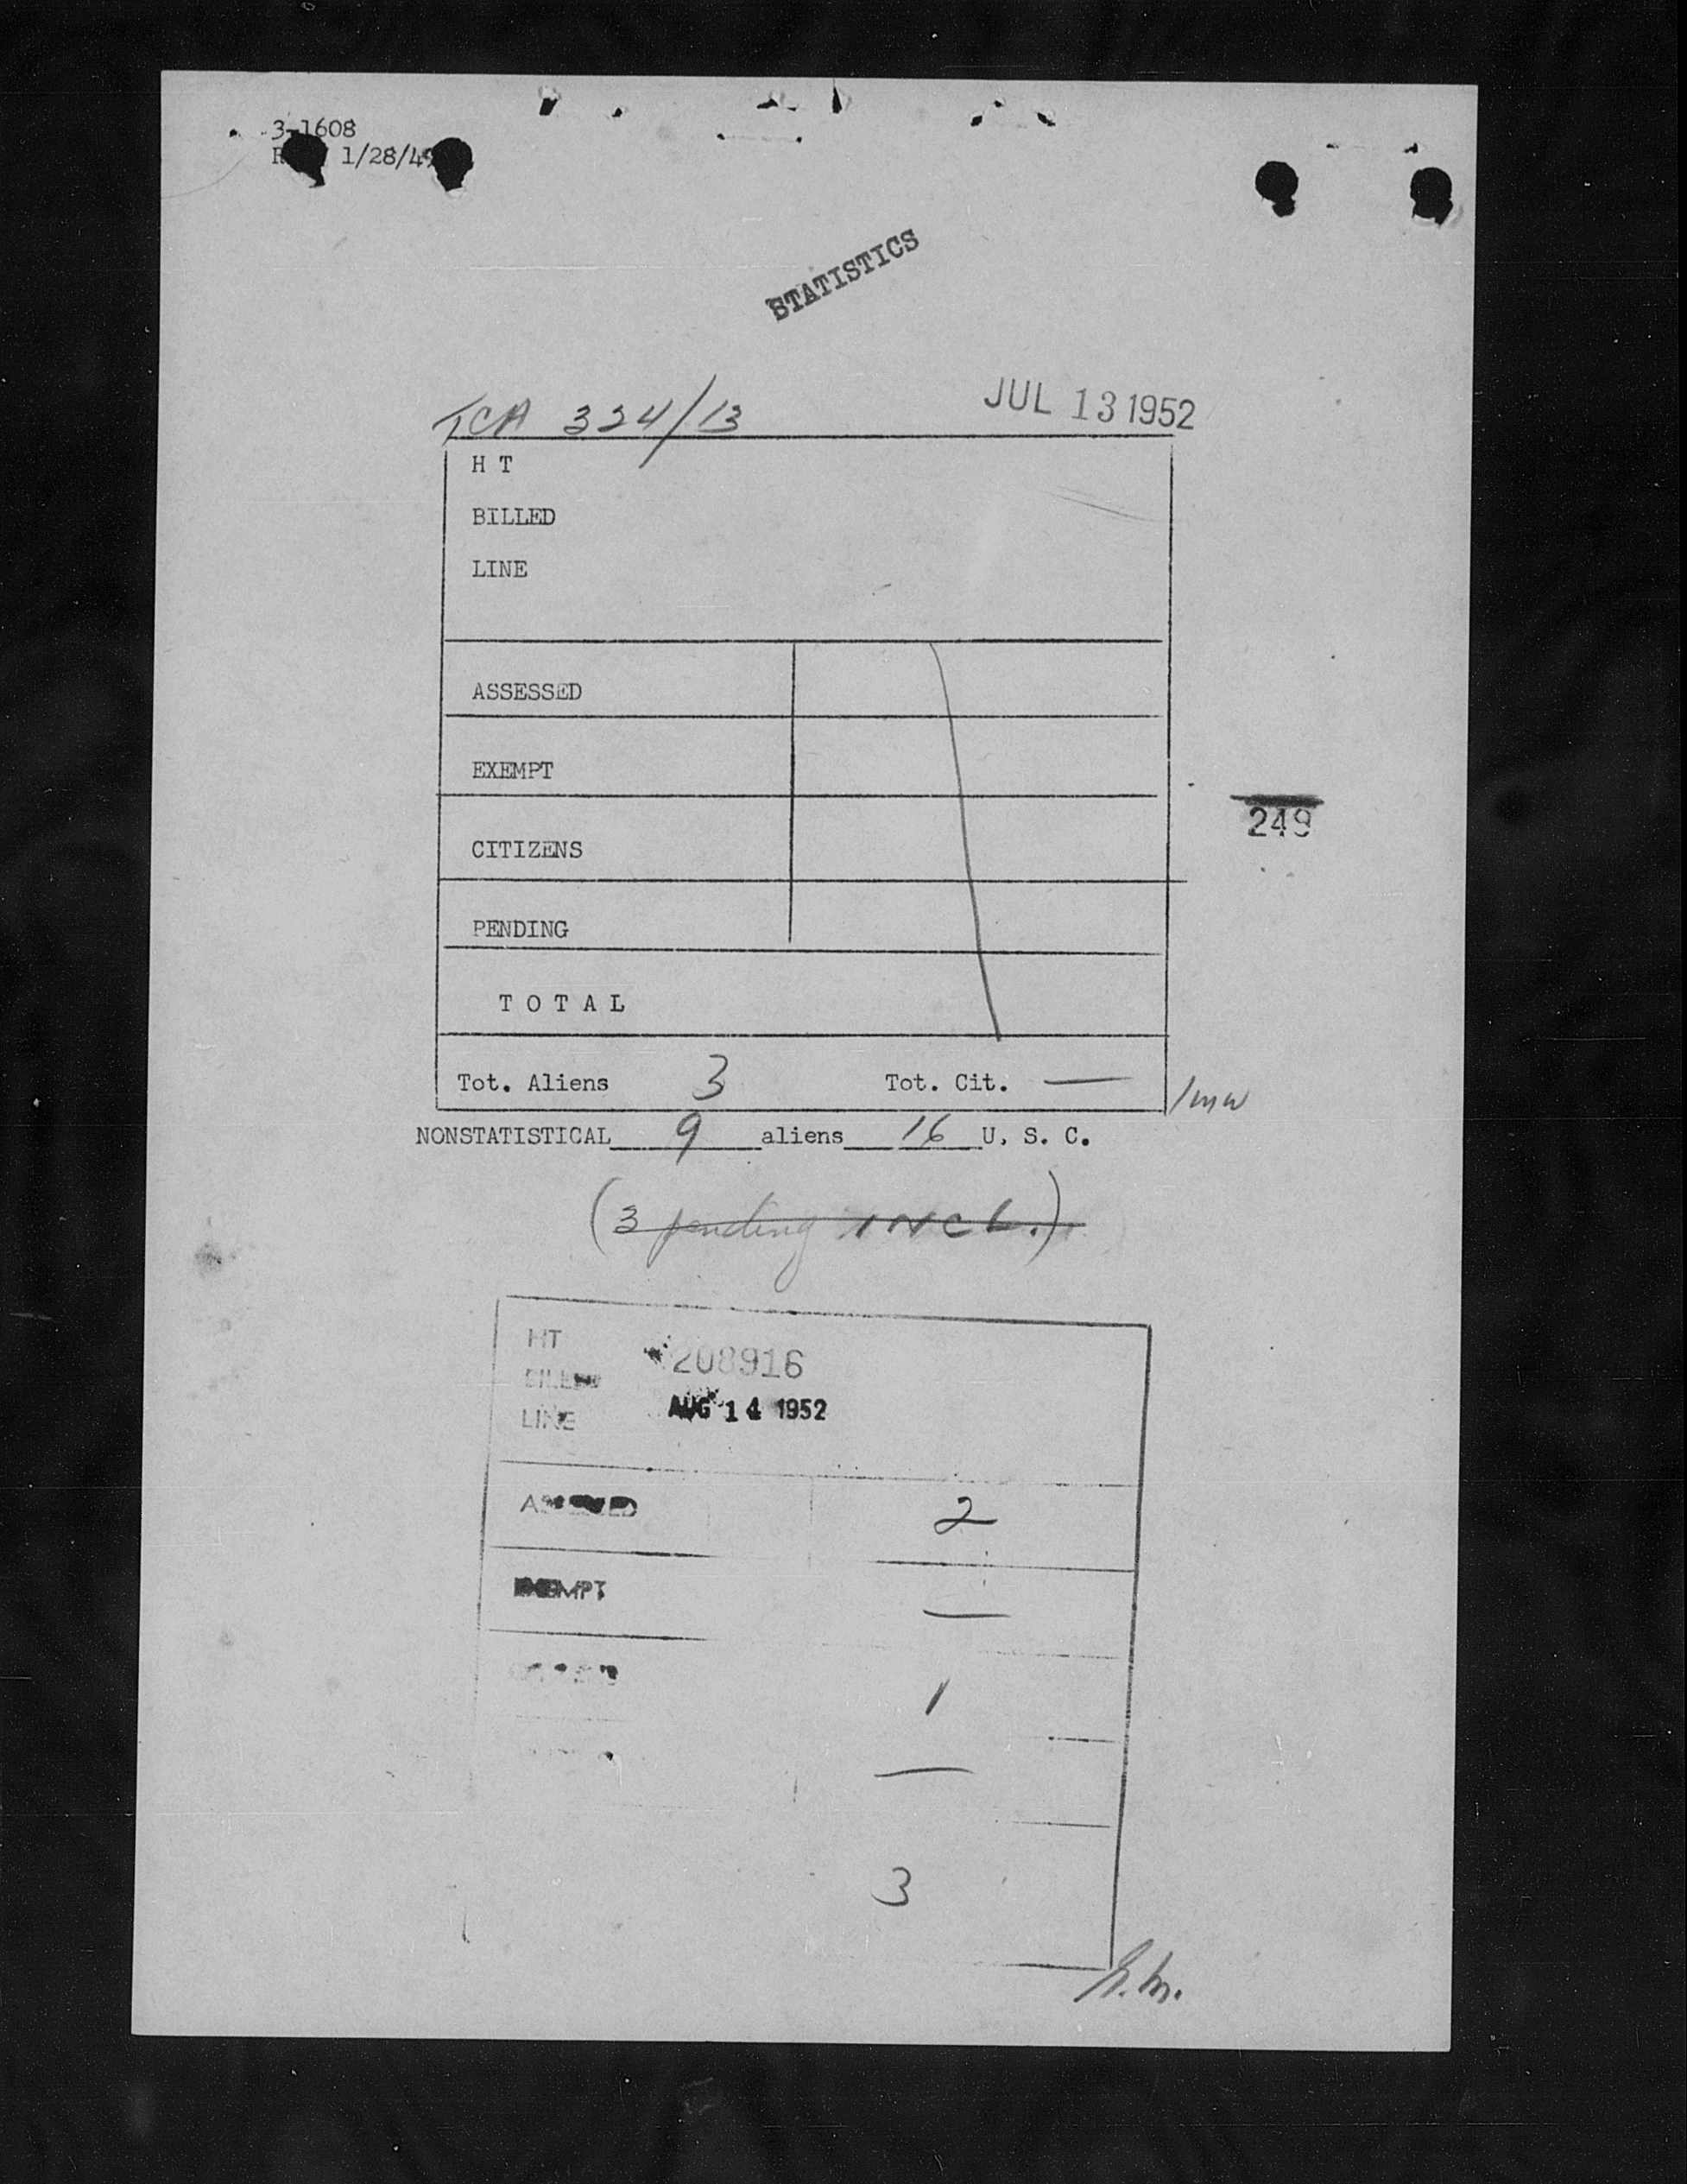 3-1608
1/28/49
STATISTICS
TCA 324/13
JUL 13 1952
H T
BILLED
LINE
ASSESSED
EXEMPT
249
CITIZENS
PENDING
T O T A L
Tot. Aliens 3 Tot. Cit. —
/mw
NONSTATISTICAL 9 aliens 16 U. S. C.
(3 pending INCL.)
HT 208916
BILLED
LINE AUG 14 1952
2
EXEMPT —
1
—
3